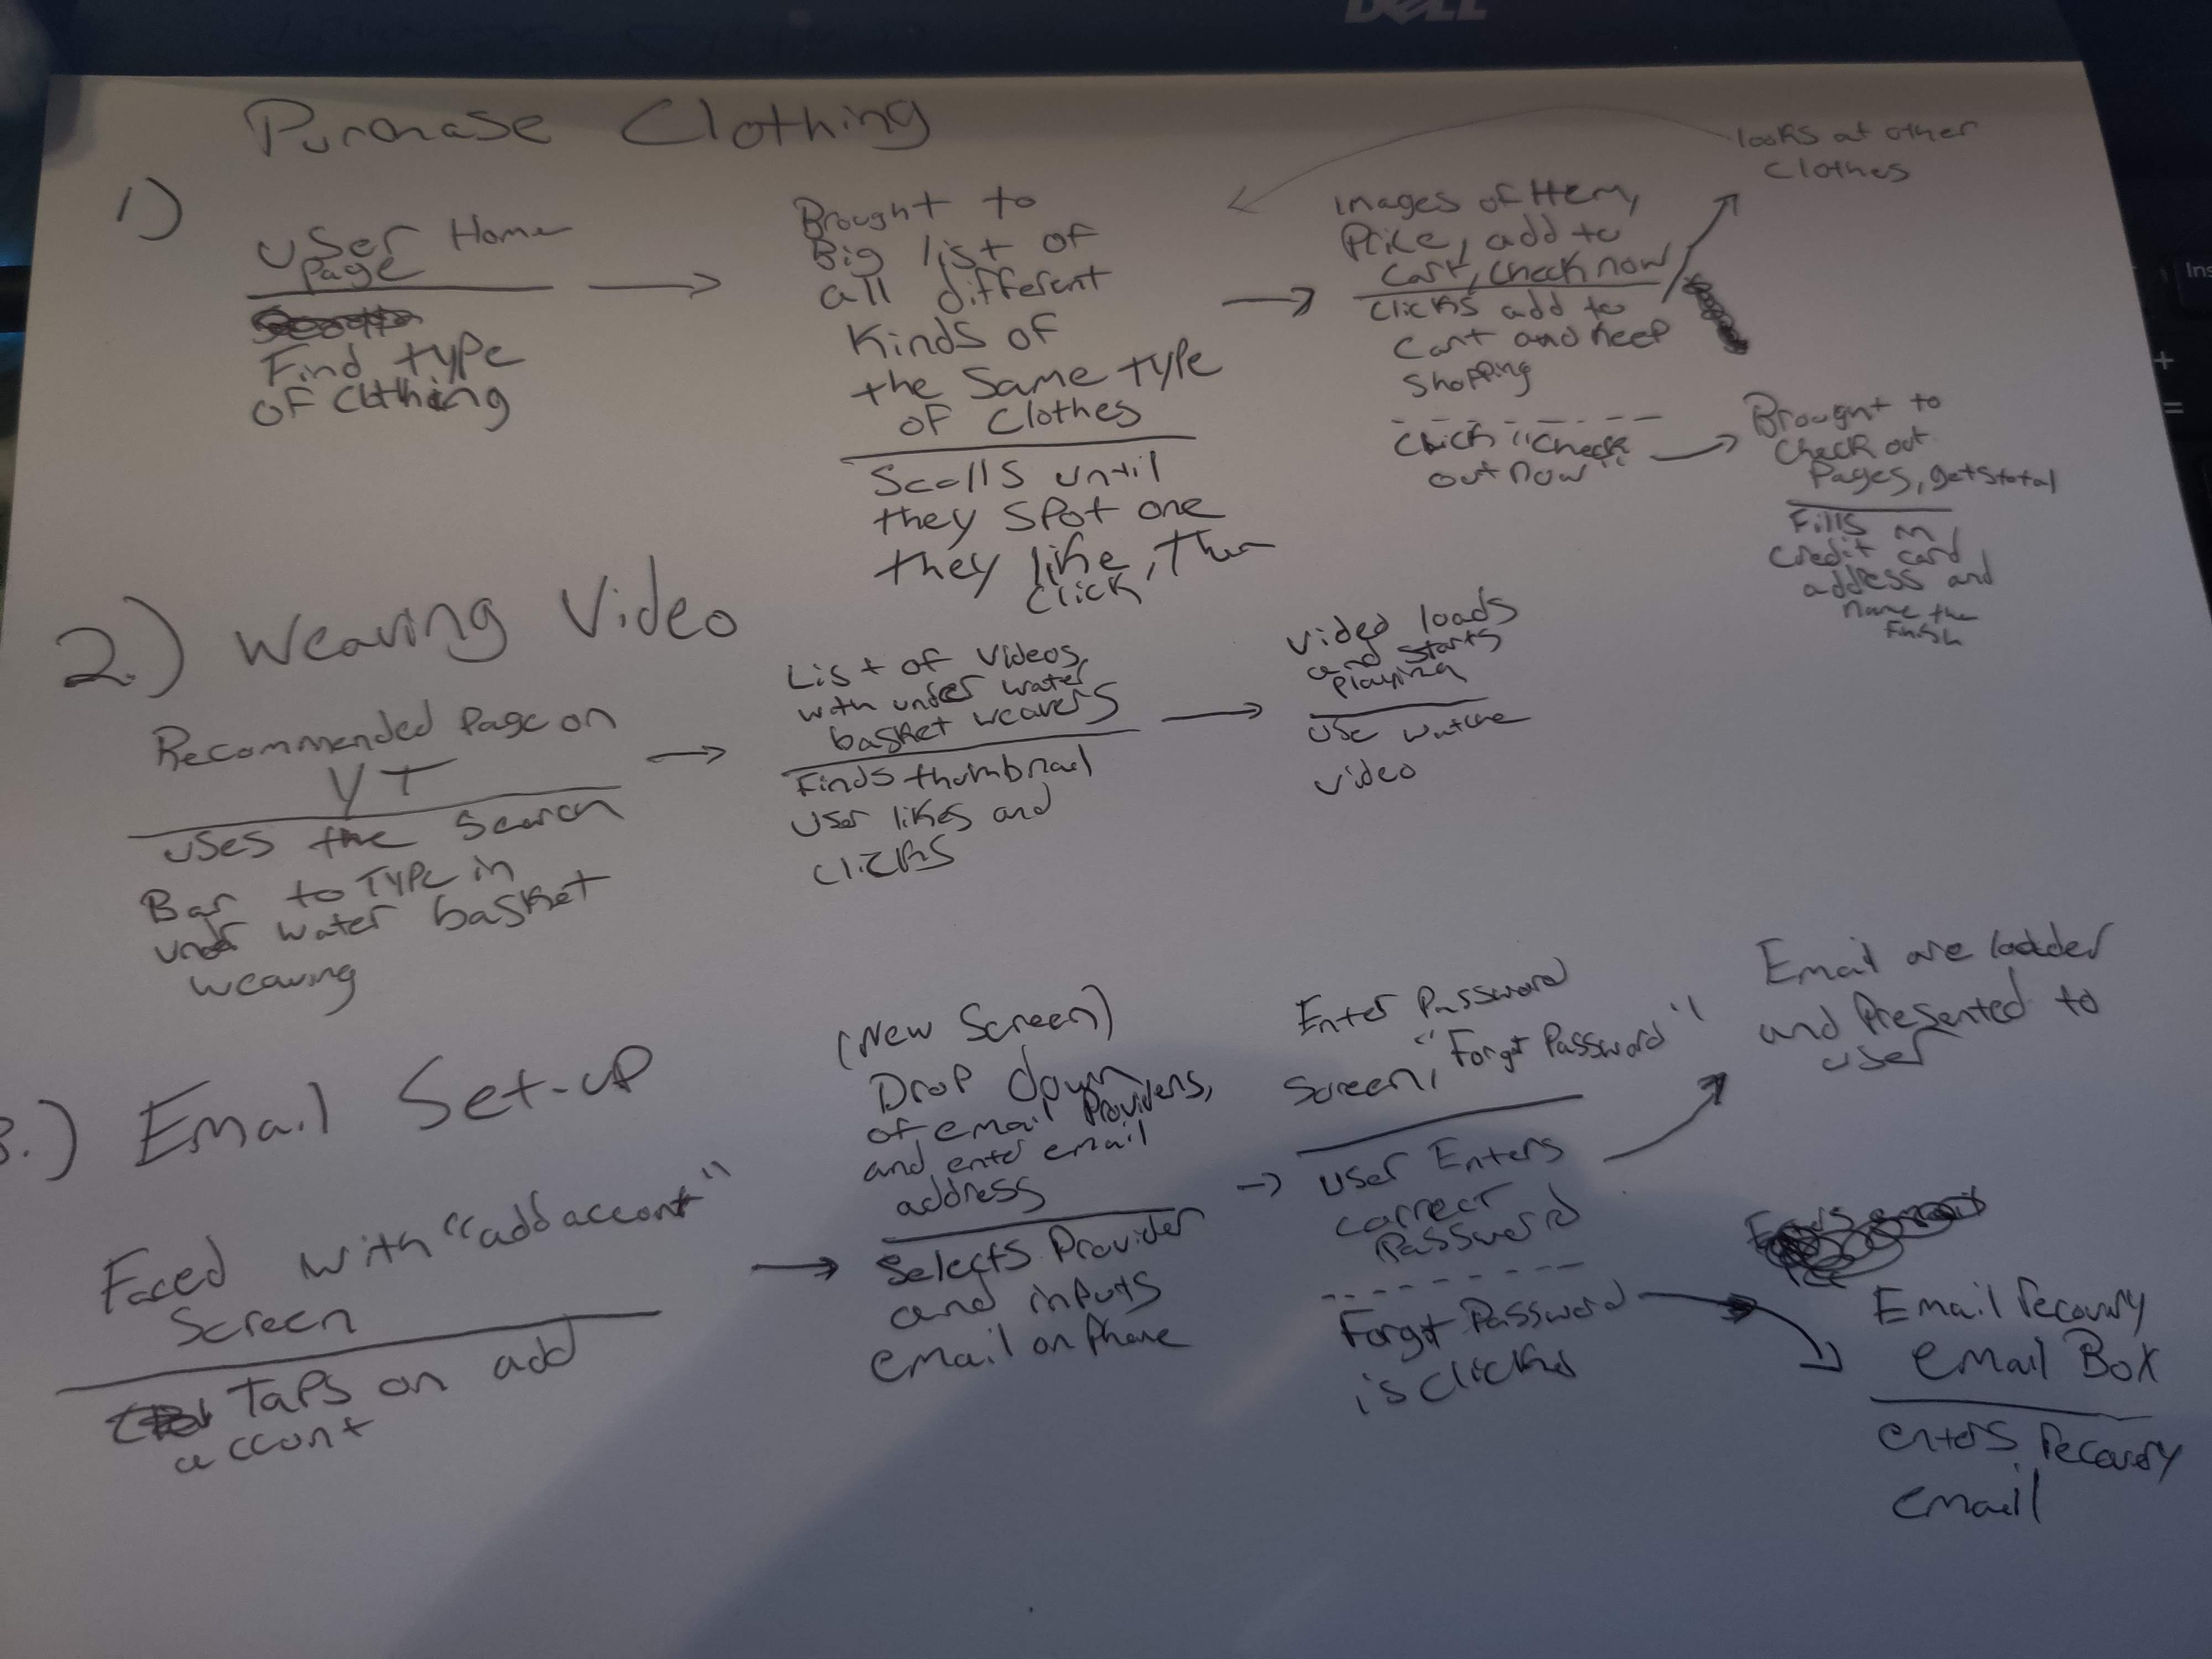 DELL
Ins
+
=
Purchase Clothing
1)
User Home
Page
Find type
of clothing
Brought to
Big list of
all different
Kinds of
the same type
of clothes
Scolls until
they spot one
they like, then
click
Images of Item,
Price, add to
cart, check now
clicks add to
cart and keep
shopping
looks at other
clothes
Click "check
out now"
Brought to
check out
Pages, gets total
Fills in
credit card
address and
name then
finish
2.) Weaving Video
Recommended Page on
YT
uses the search
Bar to type in
under water basket
weaving
List of videos,
with under water
basket weavers
Finds thumbnail
user likes and
clicks
video loads
and starts
playing
video
3.) Email Set-up
Faced with "add account"
Screen
Taps on add
account
(New Screen)
Drop down
of email Providers,
and enter email
address
Selects Provider
and inputs
email on phone
Enter Password
Screen, "Forgot Password"
user Enters
correct
Password
Forgot Password
is clicked
Email are loadded
and presented to
user
Email recovery
email Box
enters recovery
email